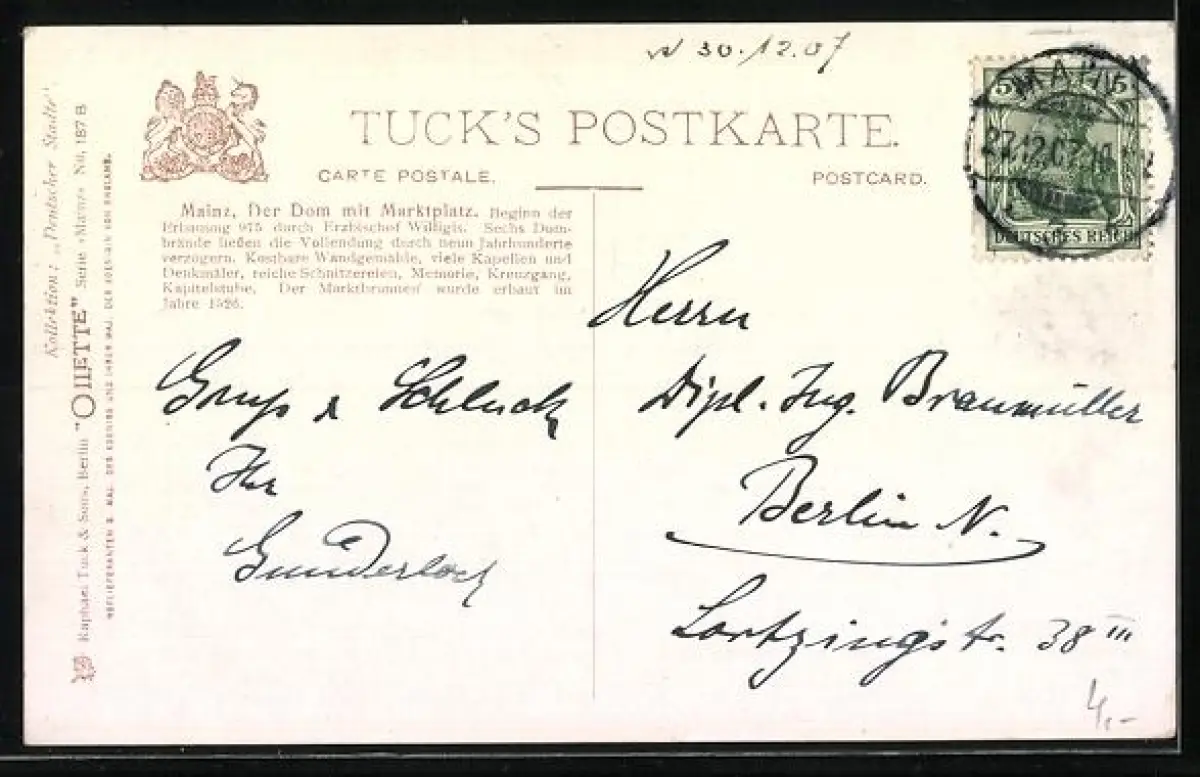 30.12.07
TUCK'S POSTKARTE.
CARTE POSTALE.
POSTCARD.
5 5
MAINZ
27.12.07
DEUTSCHES REICH
Mainz, Der Dom mit Marktplatz. Beginn der
Erbauung 975 durch Erzbischof Willigis. Sechs Dom-
brände ließen die Vollendung durch neun Jahrhunderte
verzögern. Kostbare Wandgemälde, viele Kapellen und
Denkmäler, reiche Schnitzereien, Memorie, Kreuzgang,
Kapitelstube. Der Marktbrunnen wurde erbaut im
Jahre 1526.
Kollektion: „Deutscher Städte"
Raphael Tuck & Sons, Berlin "OILETTE" Serie »Mainz« No. 187 B
HOFLIEFERANTEN S. MAJ. DES KOENIGS UND IHRER MAJ. DER KOENIGIN VON ENGLAND.
Gruß & Schluck
Ihr
Gunderloch
Herrn
Dipl. Ing. Braunmüller
Berlin N.
Lortzingstr. 38 III
4,-